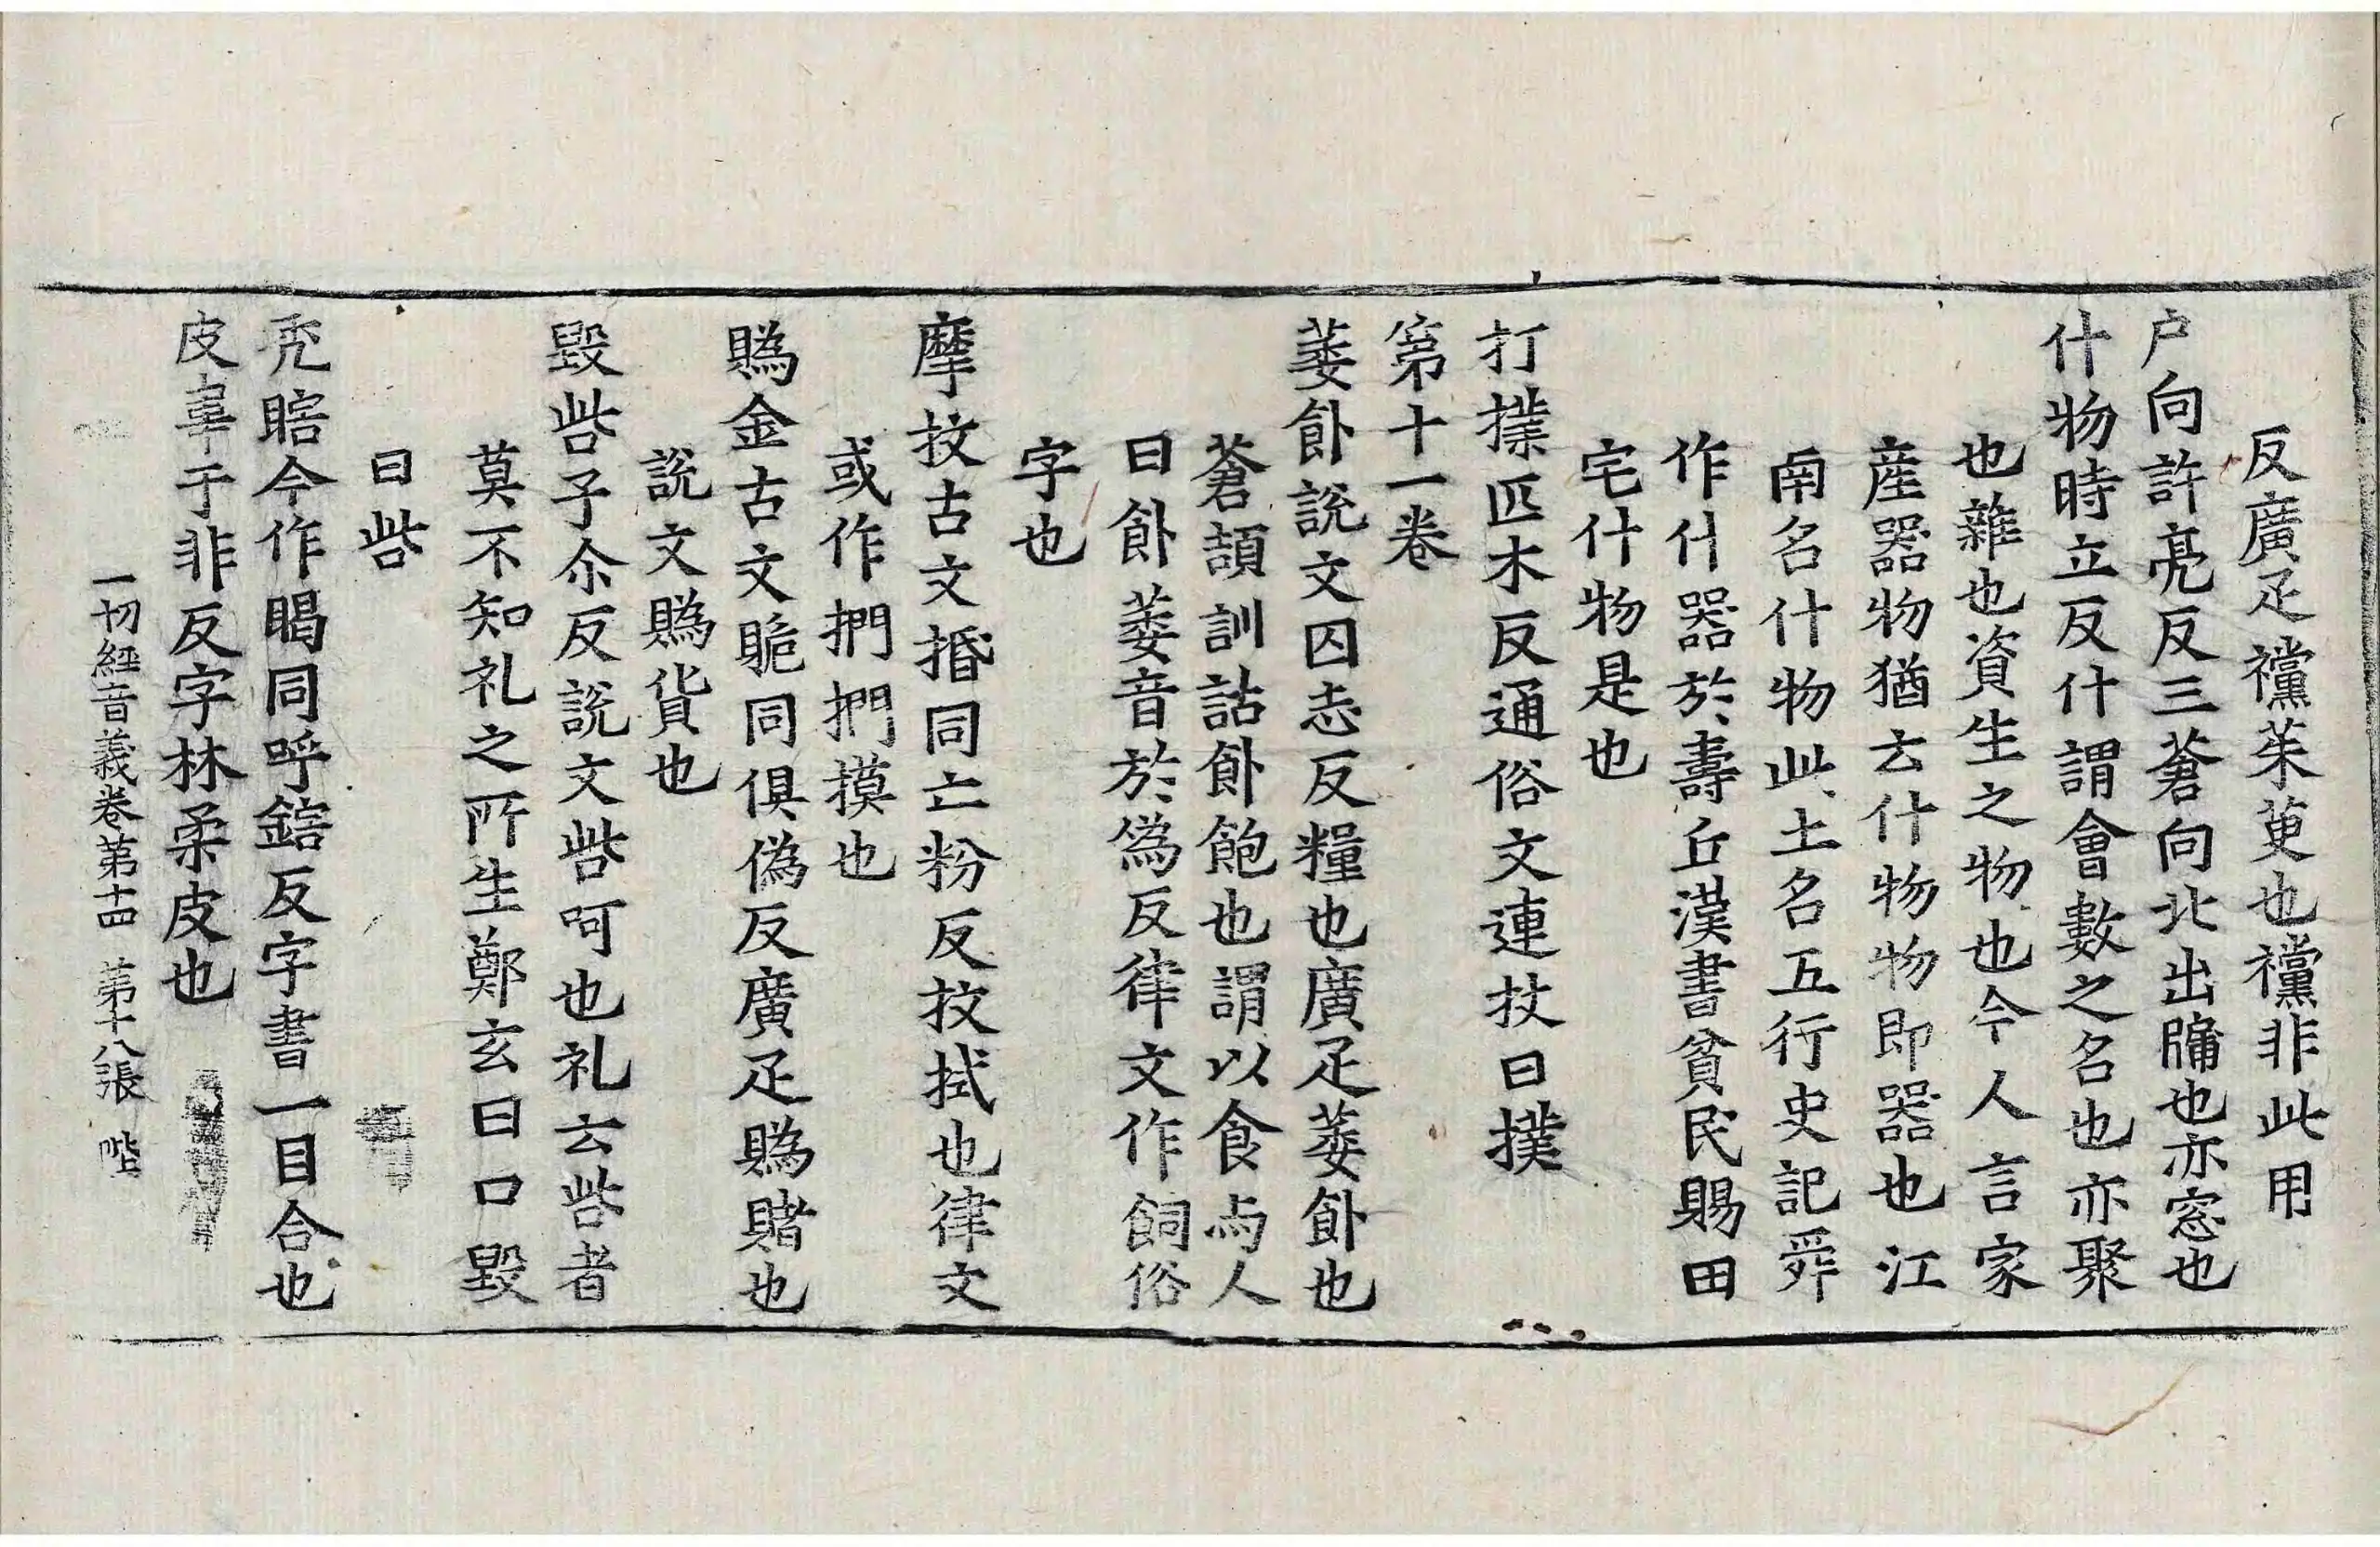 反廣疋欓茱萸也欓非此用
户向許亮反三蒼向北出牖也亦窓也
什物時立反什謂會數之名也亦聚
也雜也資生之物也今人言家
産器物猶云什物物即器也江
南名什物此土名五行史記舜
作什器於壽丘漢書貧民賜田
宅什物是也
打撲匹木反通俗文連杖曰撲
第十一卷
萎飤說文囚恚反糧也廣疋萎飤也
蒼頡訓詁飤飽也謂以食与人
曰飤萎音於偽反律文作飼俗
字也
摩抆古文捪同亡粉反抆拭也律文
或作捫捫摸也
賜金古文賘同俱偽反廣疋賜賭也
說文賜貨也
毀呰子尒反說文呰呵也礼云呰者
莫不知礼之所生鄭玄曰口毀
曰呰
秃瞎今作𥈎同呼鎋反字書一目合也
皮韋于非反字林柔皮也
一切經音義卷第十四 第十八張 陛